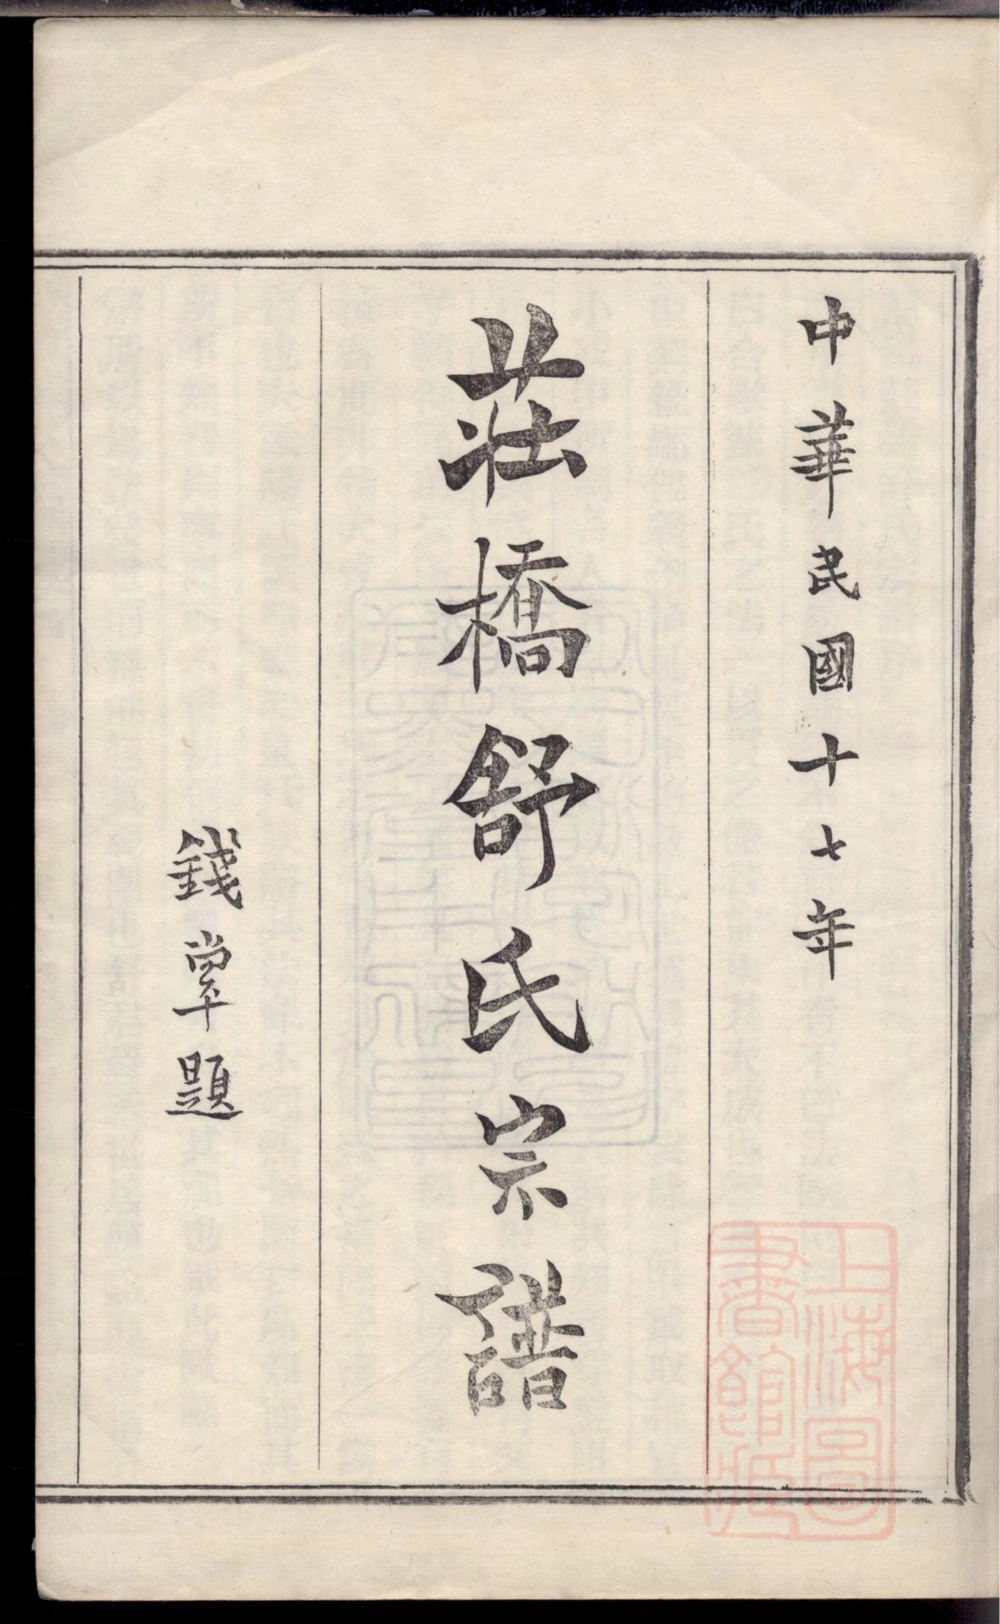 中華民國十七年
莊橋舒氏宗譜
錢罕題
上海圖
書館藏